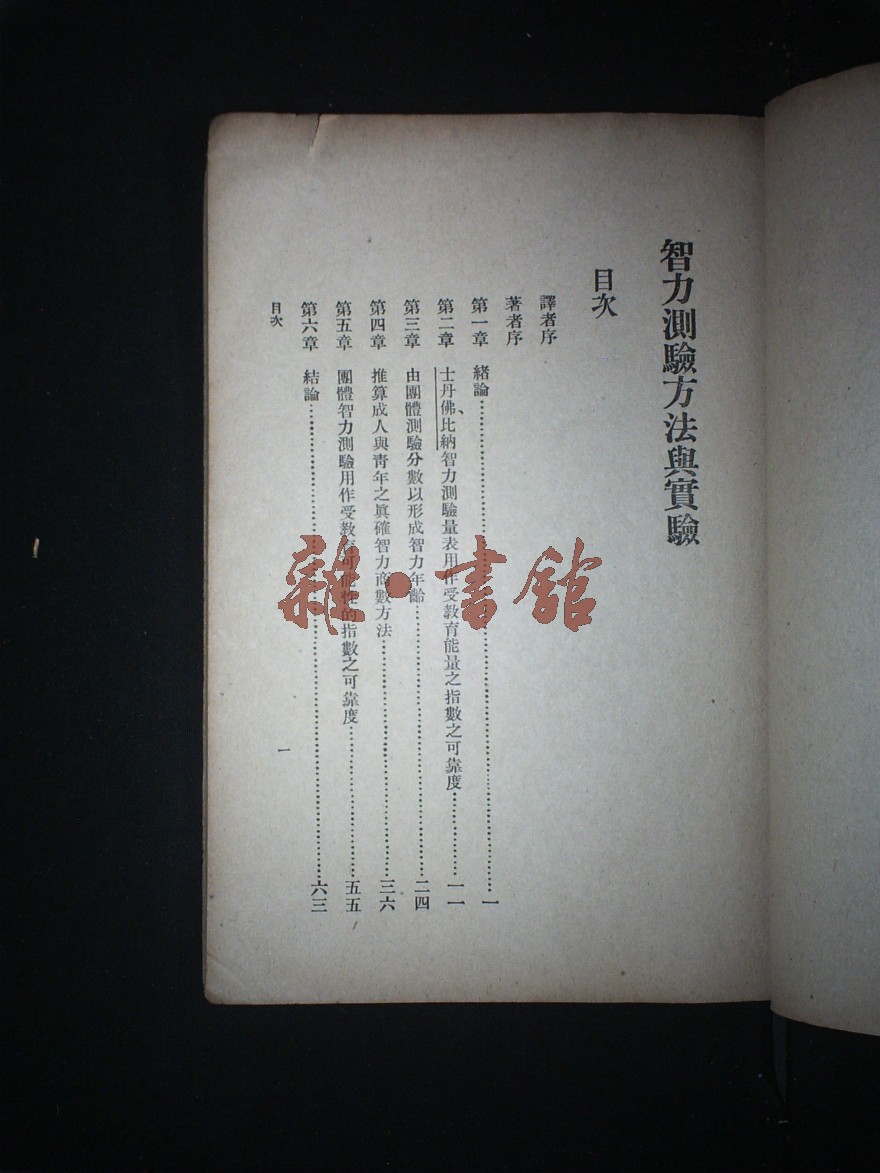 智力測驗方法與實驗
目次
譯者序
著者序
第一章 緒論……………………一
第二章 士丹佛、比納智力測驗量表用作受教育能量之指數之可靠度……………………一一
第三章 由團體測驗分數以形成智力年齡……………………二四
第四章 推算成人與靑年之眞確智力商數方法……………………三六
第五章 團體智力測驗用作受教育可能性的指數之可靠度……………………五五
第六章 結論……………………六三
目次
一
雜·書館